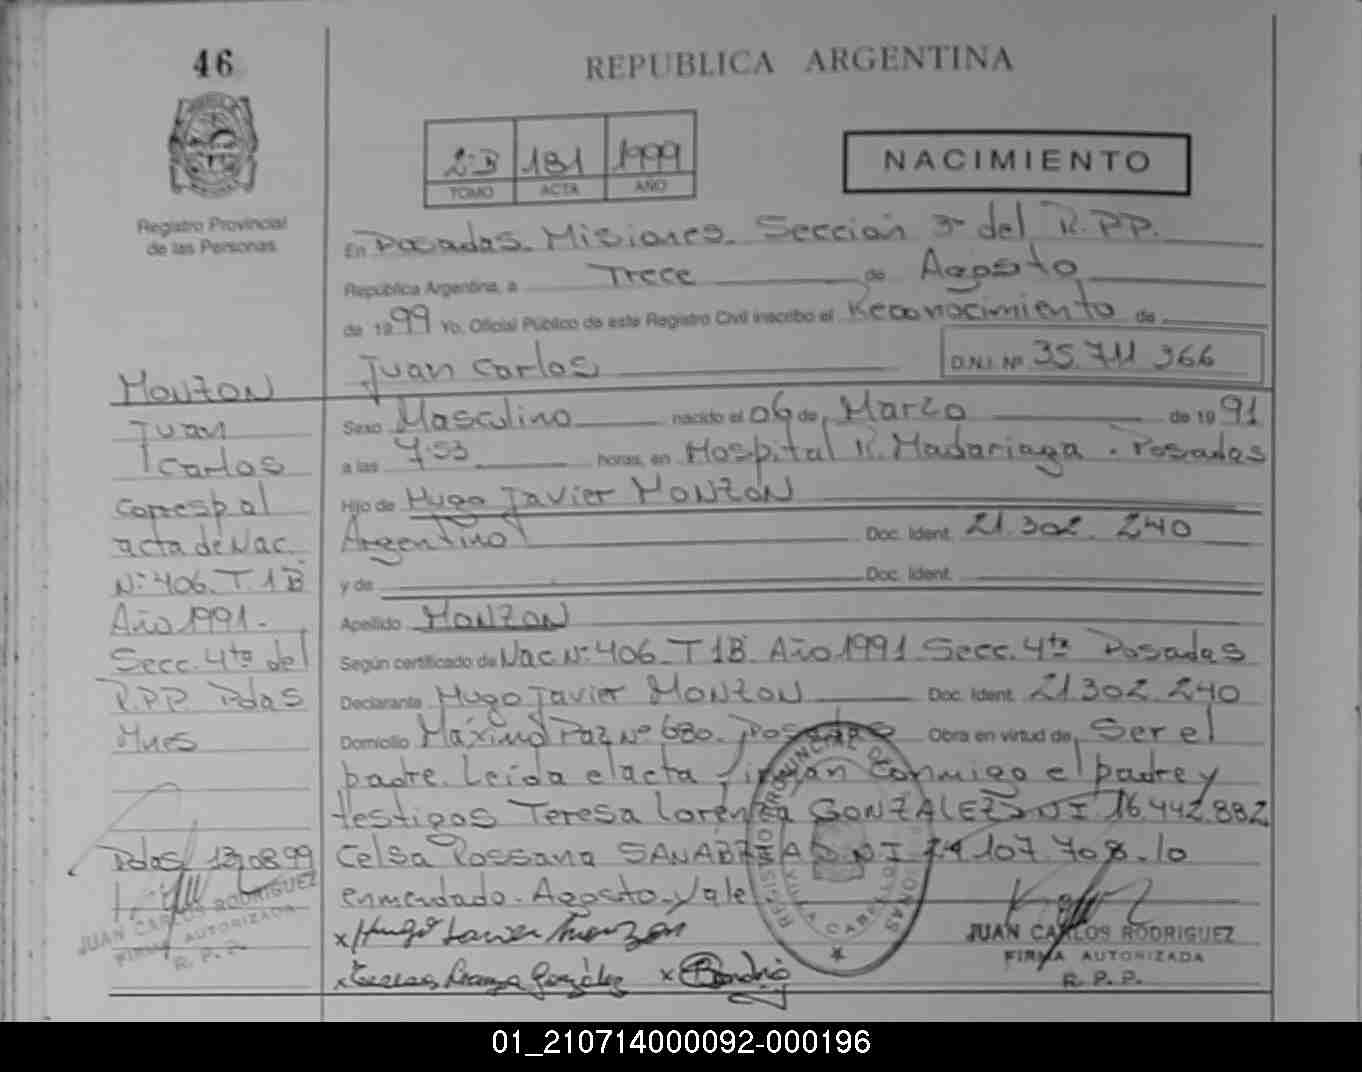 46
REPUBLICA ARGENTINA
2·B 181 1999
TOMO ACTA AÑO
NACIMIENTO
Registro Provincial
de las Personas
En Posadas. Misiones. Sección 3ª del R.P.P.
República Argentina, a Trece de Agosto
de 1999 Yo, Oficial Público de este Registro Civil inscribo el Reconocimiento de
Juan Carlos D.N.I. Nº 35.711.366
Sexo Masculino nacido el 06 de Marzo de 1991
a las 7:53 horas, en Hospital R. Madariaga. Posadas
Hijo de Hugo Javier MONZON
Argentino Doc. Ident. 21.302.240
y de Doc. Ident.
Apellido MONZON
Según certificado de Nac Nº 406. T 1B. Año 1991 Secc. 4ta Posadas
Declarante Hugo Javier MONZON Doc. Ident. 21.302.240
Domicilio Máximo Paz Nº 680. Posadas Obra en virtud de Ser el
padre. Leída el acta firman conmigo el padre y
testigos Teresa Lorenza GONZALEZ DNI 16.442.882
Celsa Rossana SANABRIA DNI 24.107.708. lo
enmendado. Agosto. Vale
x Hugo Javier Monzon
x Teresa Lorenza González x
JUAN CARLOS RODRIGUEZ
FIRMA AUTORIZADA
R. P. P.
MONZON
Juan
Carlos
Corresp al
acta de Nac.
Nº 406. T. 1B
Año 1991.
Secc. 4ta del
R.P.P. Pdas
Mnes
Pdas 13/08/99
JUAN CARLOS RODRIGUEZ
FIRMA AUTORIZADA
R. P. P.
01_210714000092-000196